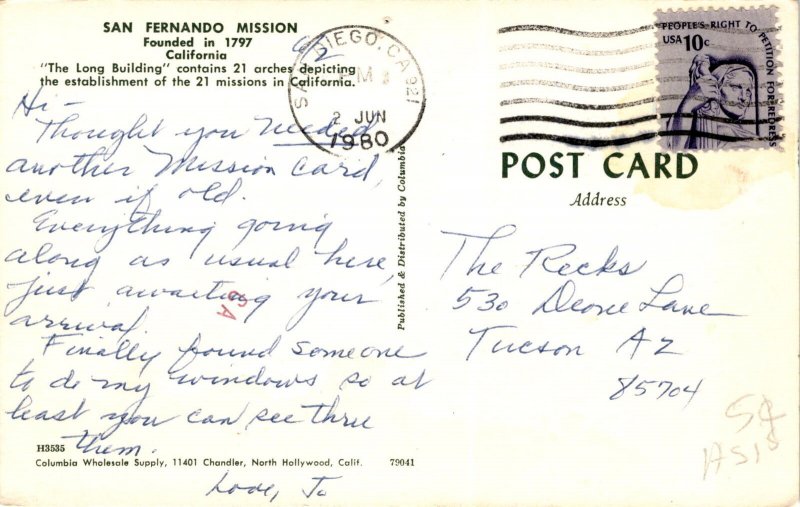 SAN FERNANDO MISSION
Founded in 1797
California
"The Long Building" contains 21 arches depicting
the establishment of the 21 missions in California.
6/2
SAN DIEGO, CA 921
PM
2 JUN
1980
PEOPLE'S RIGHT TO PETITION FOR REDRESS
USA 10c
Hi -
Thought you needed
another Mission Card,
even if old.
Everything going
along as usual here,
just awaiting your
arrival.
Finally found someone
to do my windows so at
least you can see thru
them.
Love, Jo
Published & Distributed by Columbia
H3535
Columbia Wholesale Supply, 11401 Chandler, North Hollywood, Calif. 79041
POST CARD
Address
The Recks
530 Deone Lane
Tucson Az
85704